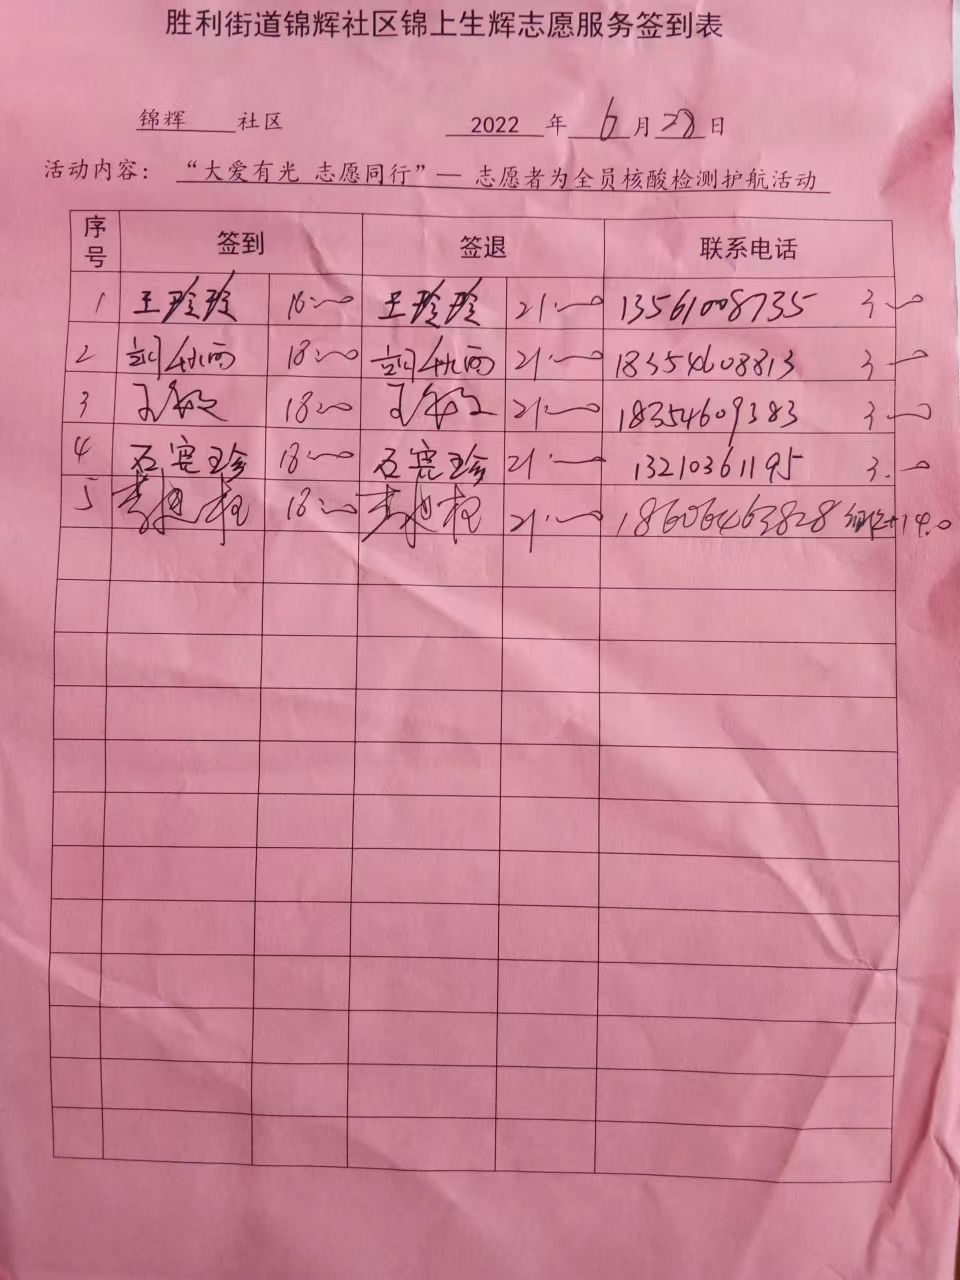 胜利街道锦辉社区锦上生辉志愿服务签到表
锦辉 社区 2022 年 6 月 28 日
活动内容： “大爱有光 志愿同行”— 志愿者为全员核酸检测护航活动
序号 签到 签退 联系电话
1 王玲玲 王玲玲 21:00 13561008735 3.00
2 18:00 21:00 18354608813 3.00
3 王敏 18:00 王敏 21:00 18354609383 3.00
4 石宪珍 18:00 石宪珍 21:00 13210361195 3.00
5 18:00 21:00 18606463828